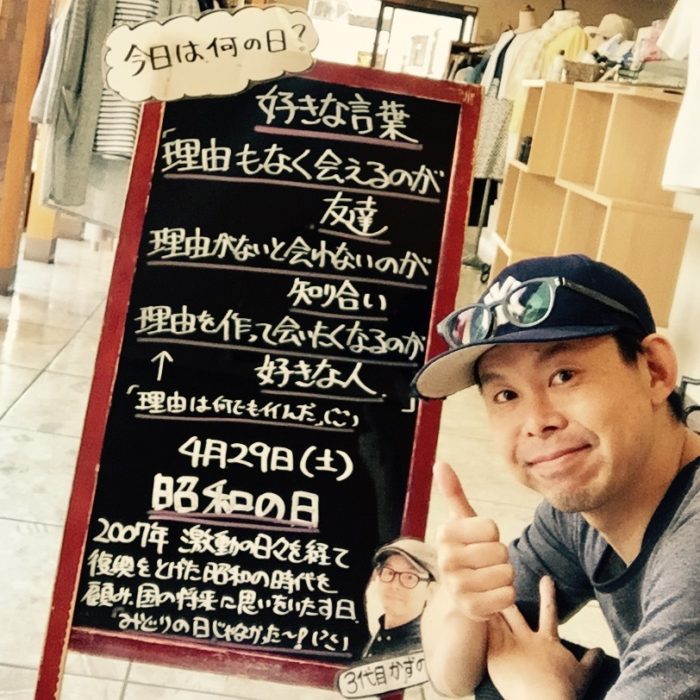 今日は何の日?
好きな言葉
「理由もなく会えるのが
友達
理由がないと会わないのが
知り合い
理由を作って会いたくなるのが
↑ 好きな人 」
「理由は何でもイイんだ」
4月29日(土)
昭和の日
2007年 激動の日々を経て
復興をとげた昭和の時代を
顧み、国の将来に思いをいたす日
みどりの日じゃなかった〜!
3代目かずの
NY